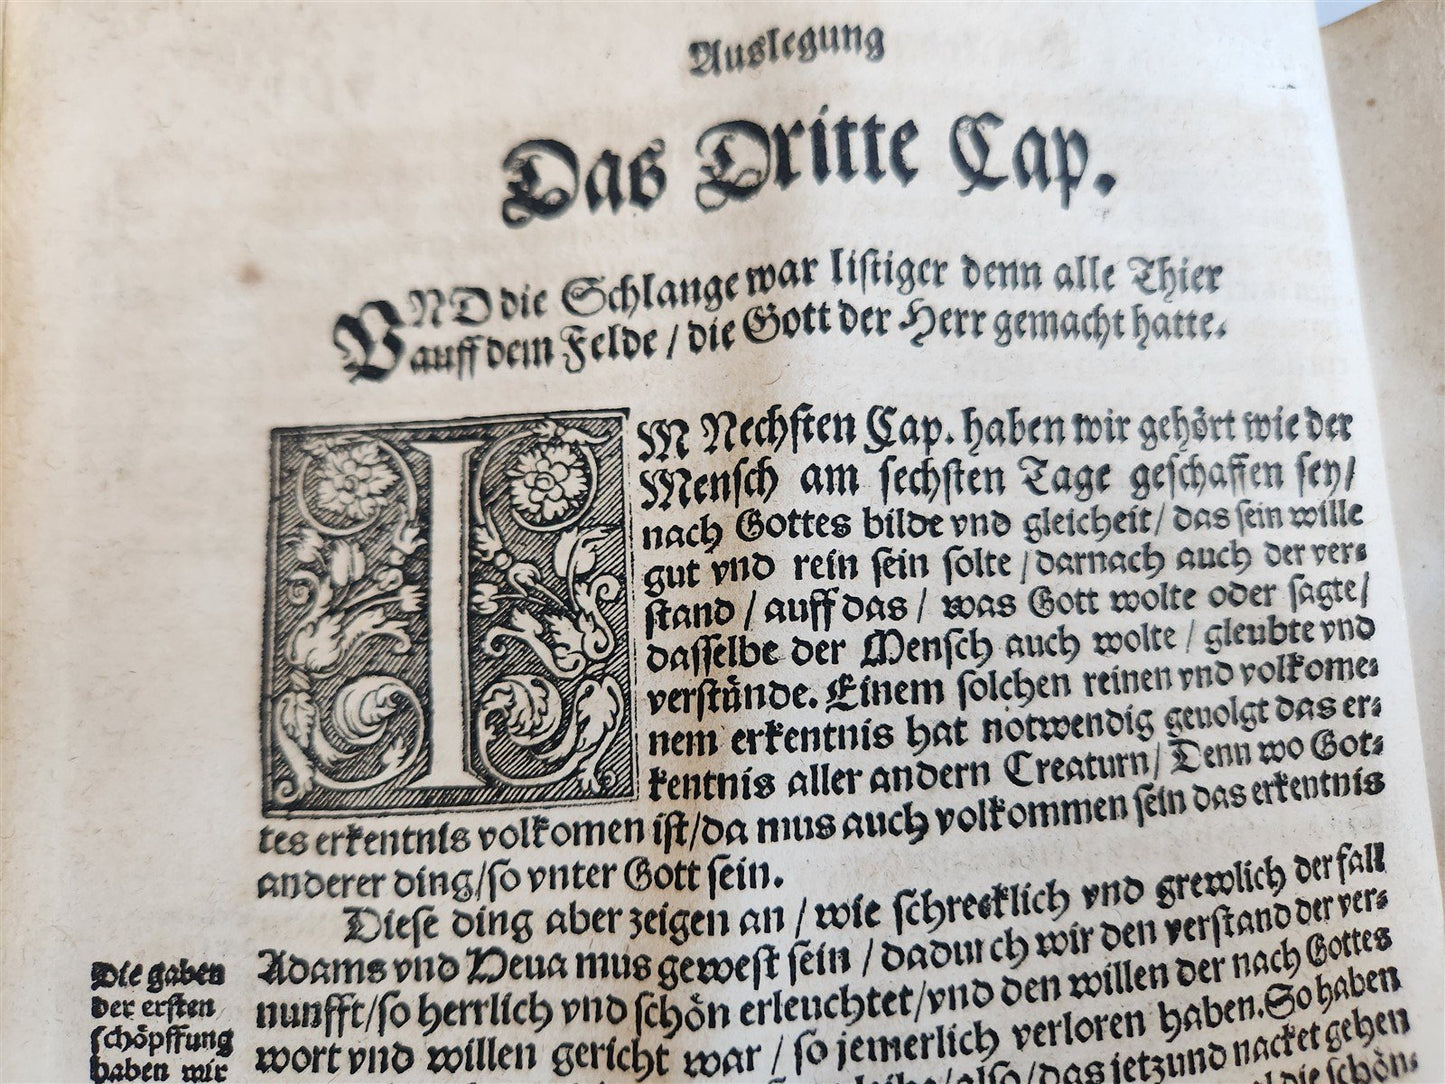 Auslegung
Das Dritte Cap.
VND die Schlange war listiger denn alle Thier
auff dem Felde / die Gott der Herr gemacht hatte.
IM Nechsten Cap. haben wir gehört wie der
Mensch am sechsten Tage geschaffen sey/
nach Gottes bilde vnd gleicheit/ das sein wille
gut vnd rein sein solte / darnach auch der ver-
stand / auff das / was Gott wolte oder sagte/
dasselbe der Mensch auch wolte / gleubte vnd
verstünde. Einem solchen reinen vnd volkome-
nem erkentnis hat notwendig geuolgt das er-
kentnis aller andern Creaturn/ Denn wo Got-
tes erkentnis volkomen ist/da mus auch volkommen sein das erkentnis
anderer ding/so vnter Gott sein.
Diese ding aber zeigen an / wie schrecklich vnd grewlich der fall
Adams vnd Heua mus gewest sein / dadurch wir den verstand der ver-
nunfft/so herrlich vnd schön erleuchtet/vnd den willen der nach Gottes
wort vnd willen gericht war / so jemerlich verloren haben. So haben
/also/das jetzund nacket gehen
die schön-
Die gaben
der ersten
schöpffung
haben wir